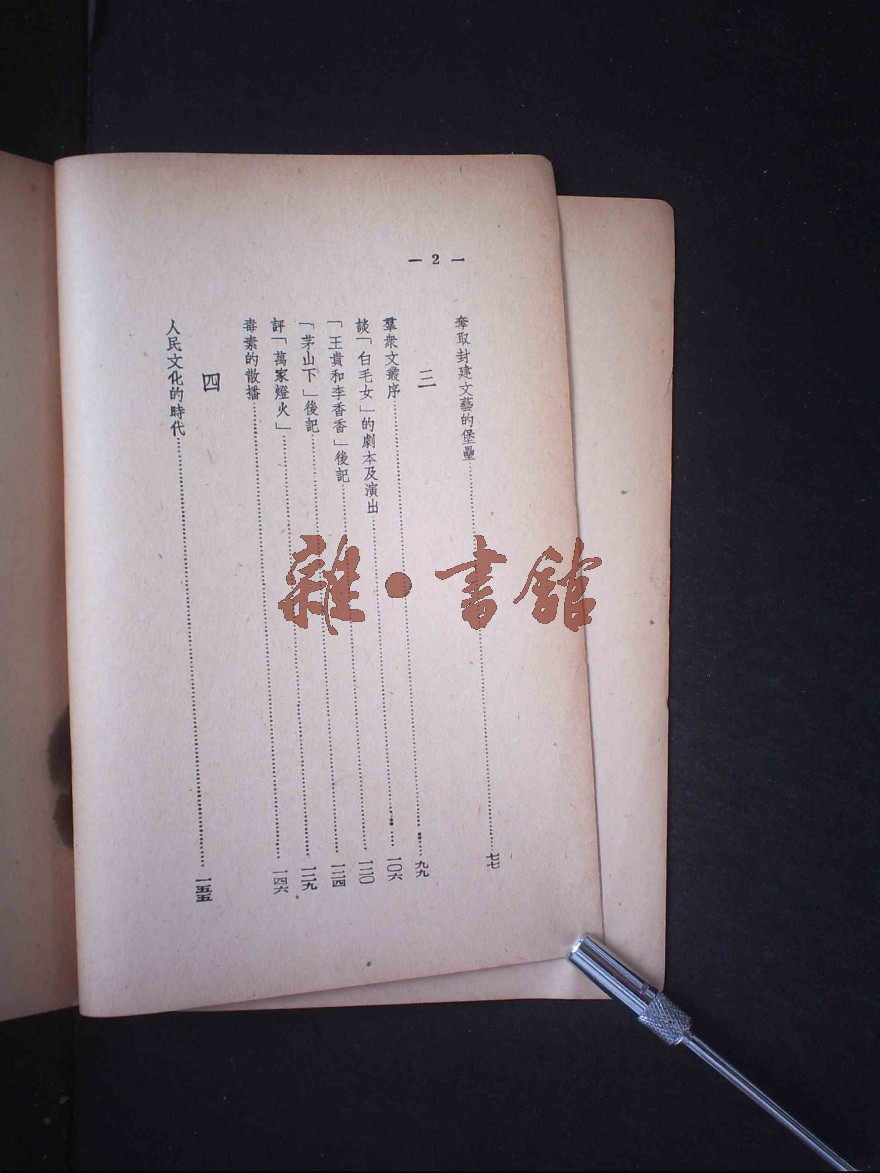 — 2 —
奪取封建文藝的堡壘……七七
三
羣衆文叢序……九九
談「白毛女」的劇本及演出……一〇六
「王貴和李香香」後記……一二〇
「茅山下」後記……一二四
評「萬家燈火」……一二九
毒素的散播……一四六
四
人民文化的時代……一五五
雜·書館